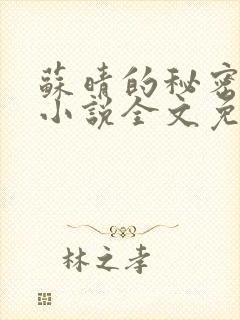 蘇晴的秘密
小說全文免
林之孝